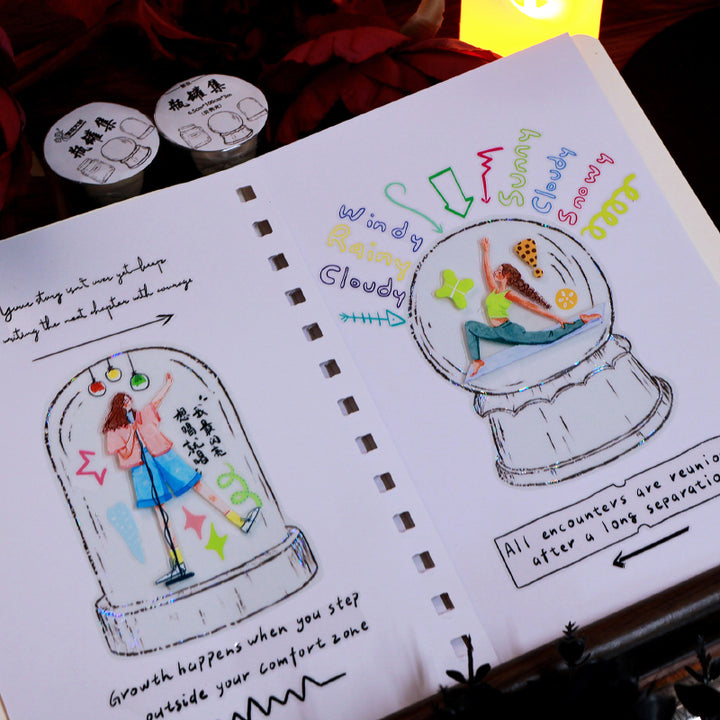 瓶罐集
瓶罐集
Your story isn't over yet-keep
writing the next chapter with courage
我最闪亮
想唱就唱
Growth happens when you step
outside your comfort zone
Windy
Rainy
Cloudy
Sunny
Cloudy
Snowy
All encounters are reunio
after a long separatio